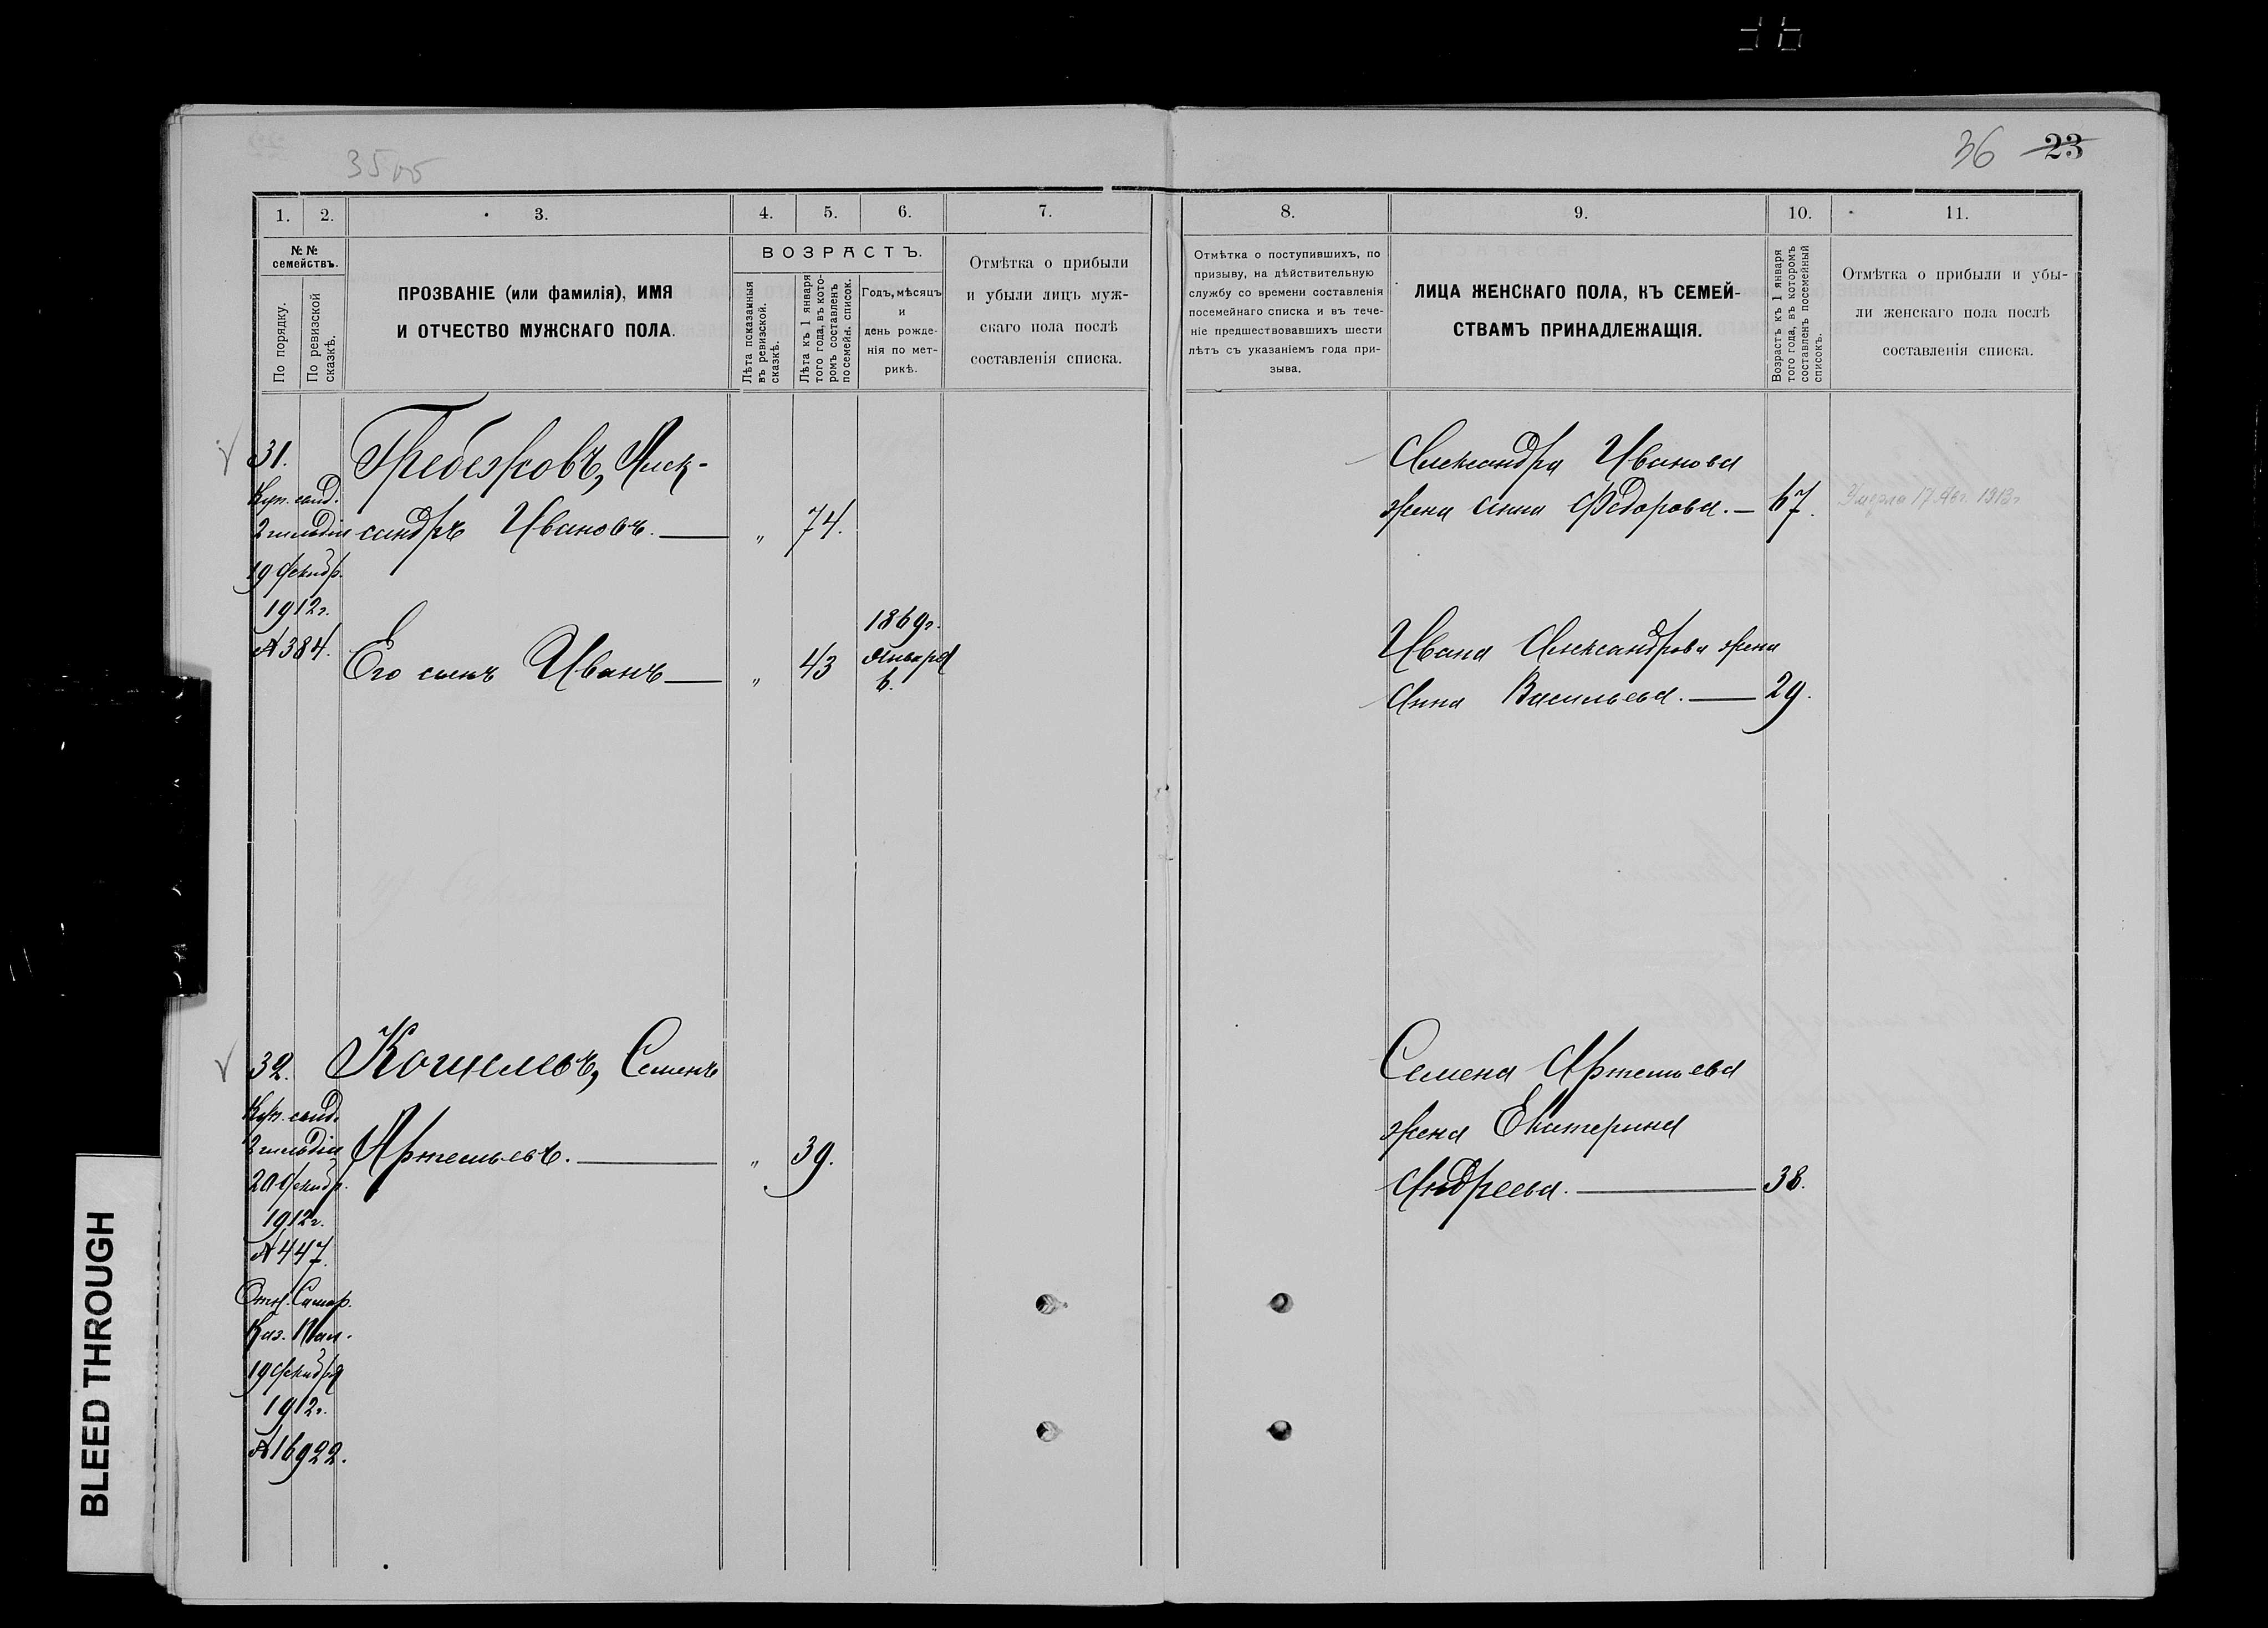 35 об
36 23
1. 2. 3. 4. 5. 6. 7.
№№ семействъ.
По порядку.
По ревизской сказкѣ.
ПРОЗВАНІЕ (или фамилія), ИМЯ
И ОТЧЕСТВО МУЖСКАГО ПОЛА.
ВОЗРАСТЪ.
Лѣта показанныя
въ ревизской.
сказкѣ.
Лѣта къ 1 января
того года, въ кото-
ромъ составленъ
посемейн. список.
Годъ, мѣсяцъ
и
день рожде-
нія по мет-
рикѣ.
Отмѣтка о прибыли
и убыли лицъ муж-
скаго пола послѣ
составленія списка.
31.
Куп. свид.
2 гильдіи
19 Декабр.
1912 г.
№ 384.
Гребежковъ, Алек-
сандръ Ивановъ. — „ 74.
Его сынъ Иванъ — „ 43
1869 г.
Января
6.
32.
Куп. свид.
2 гильдіи
20 Декабр.
1912 г.
№ 447.
Отн. Самар.
Каз. Пал.
19 Декабря
1912 г.
№ 16922.
Кошелевъ, Семенъ
Артемьевъ. — „ 39.
8. 9. 10. 11.
Отмѣтка о поступившихъ, по
призыву, на дѣйствительную
службу со времени составленія
посемейнаго списка и въ тече-
ніе предшествовавшихъ шести
лѣтъ съ указаніемъ года при-
зыва.
ЛИЦА ЖЕНСКАГО ПОЛА, КЪ СЕМЕЙ-
СТВАМЪ ПРИНАДЛЕЖАЩІЯ.
Возрастъ къ 1 января
того года, въ которомъ
составленъ посемейный
списокъ.
Отмѣтка о прибыли и убы-
ли женскаго пола послѣ
составленія списка.
Александра Иванова
жена Анна Федорова. — 67. Умерла 17 Авг. 1913 г
Ивана Александрова жена
Анна Васильева. — 29.
Семена Артемьева
жена Екатерина
Андреева. — 38.
BLEED THROUGH